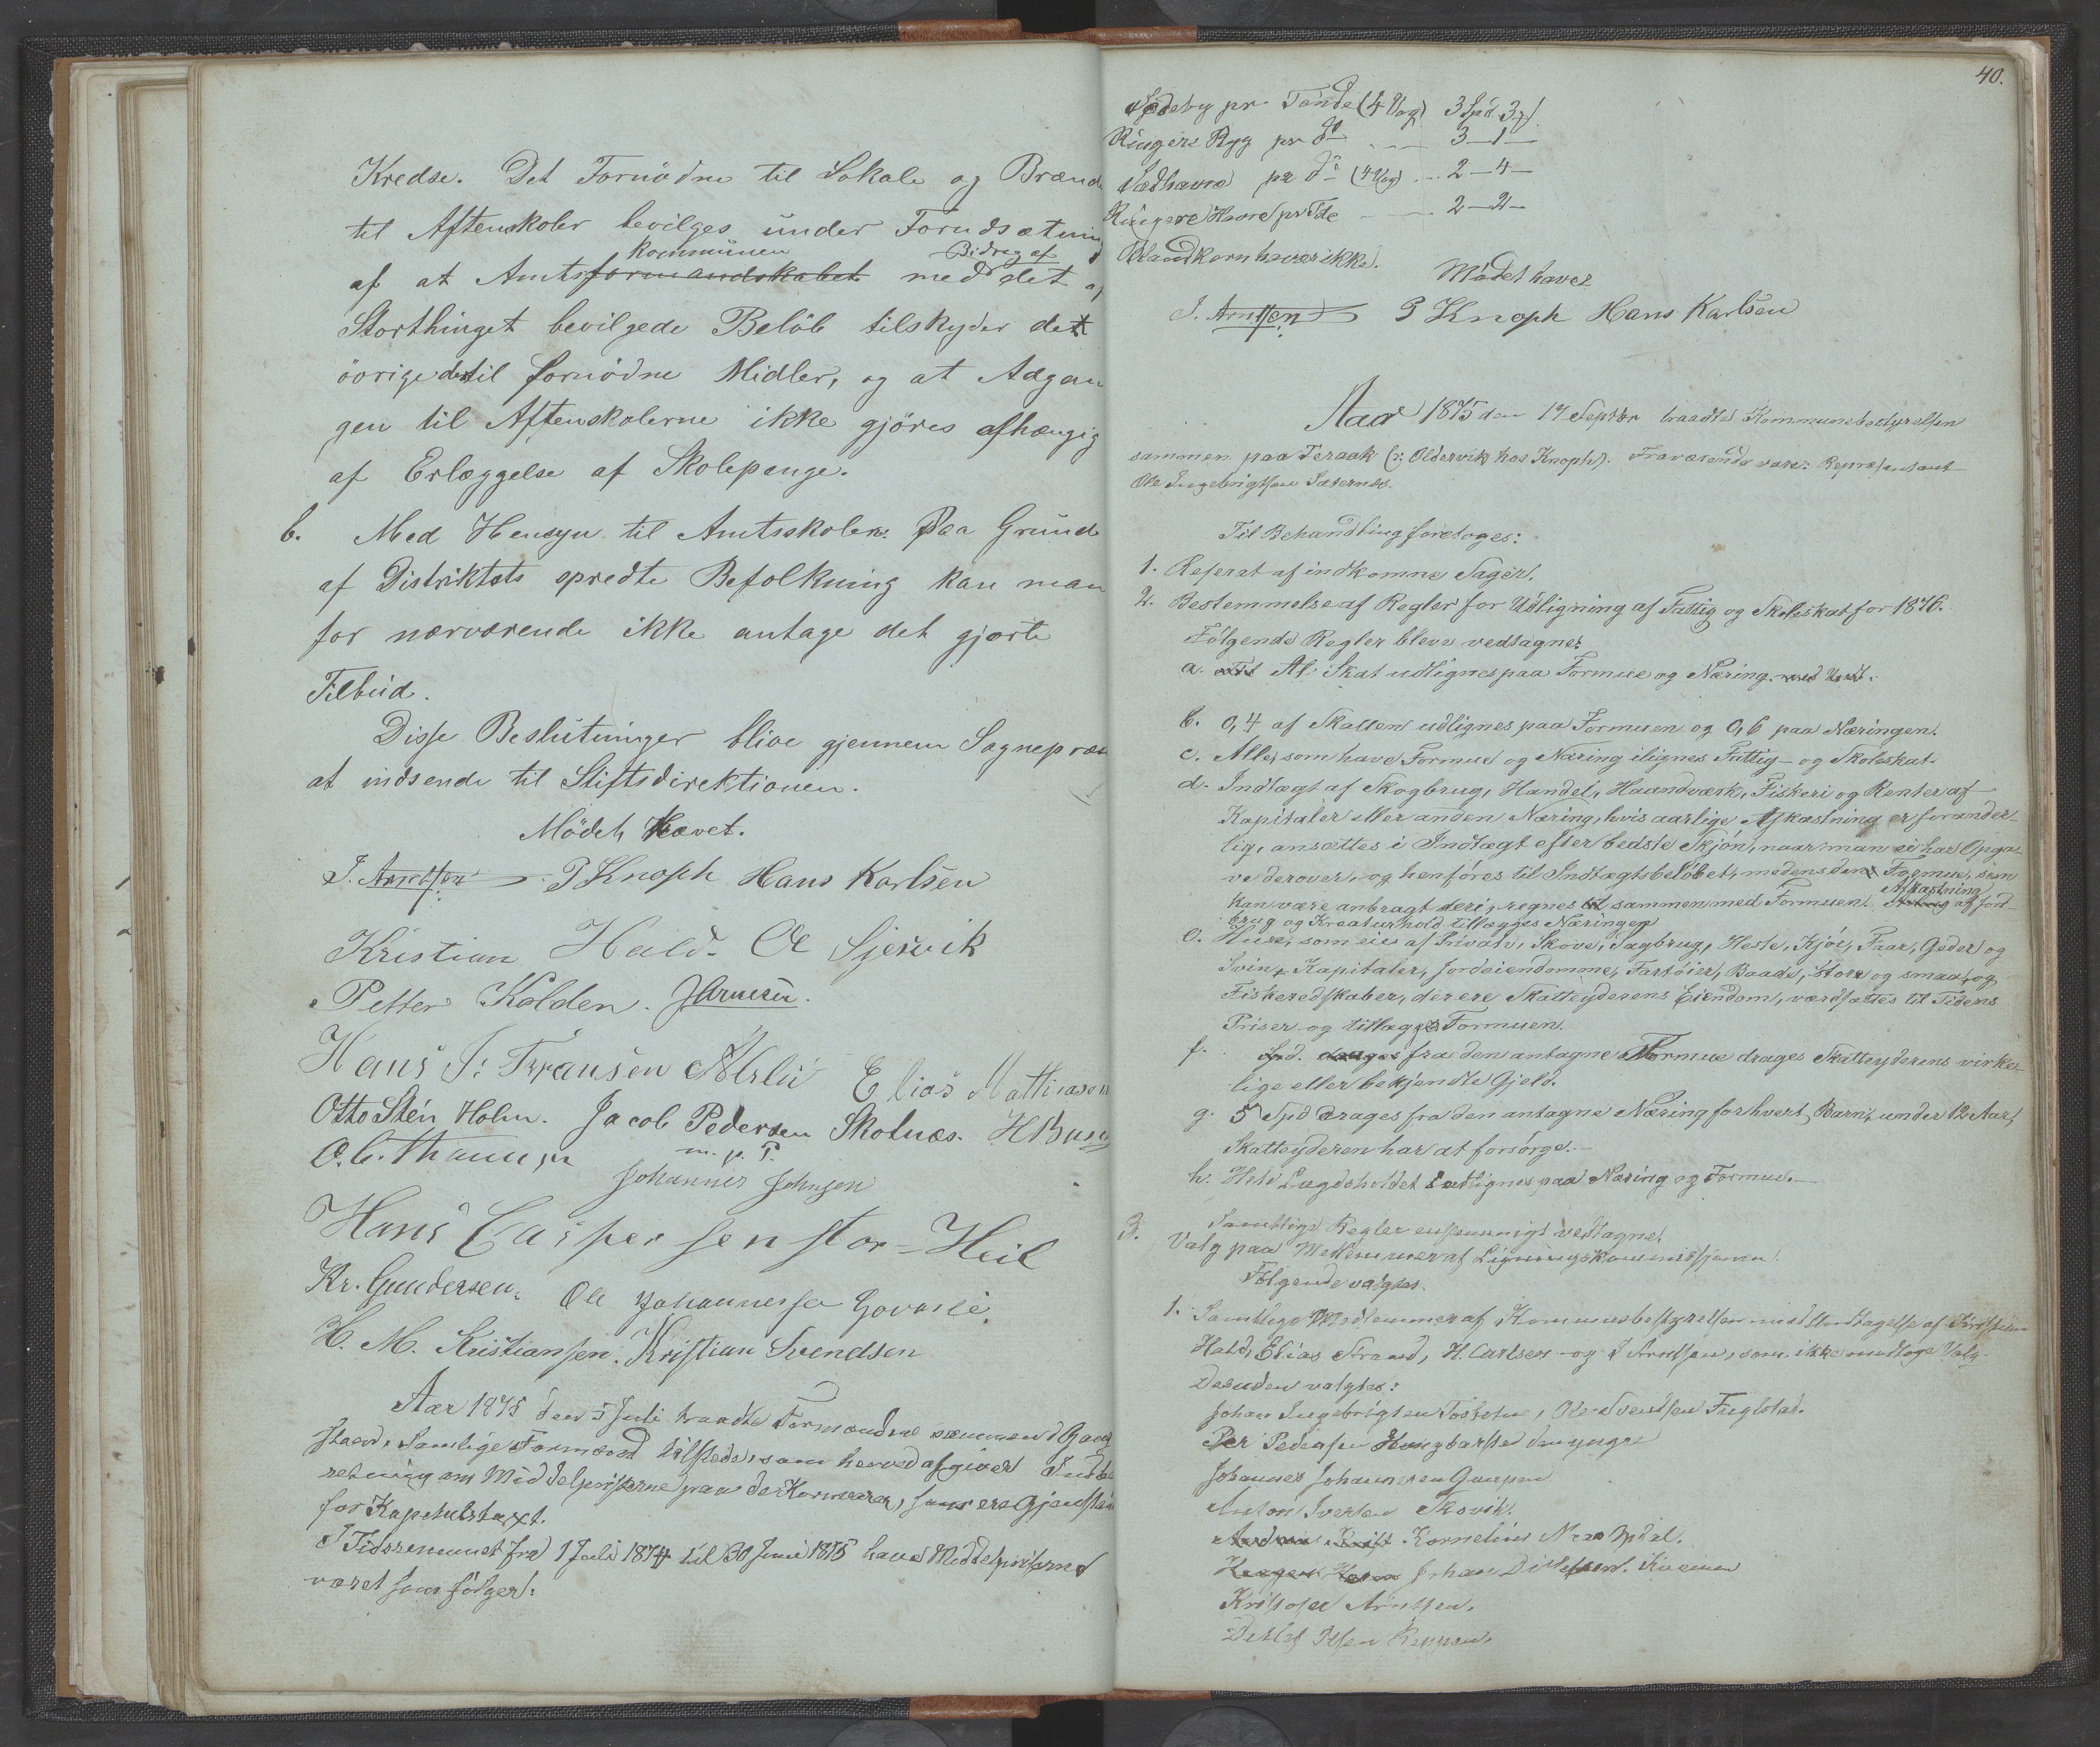 Kredse. Det Fornödne til Lokale og Brænde
til Aftenskoler bevilges under Forudsætning
Kommunen Bidrag af
af at Amtsformandskabet med det af
Storthinget bevilgede Belöb tilskyder det
övrige dertil fornödne Midler, og at Adgan
gen til Aftenskolerne ikke gjöres afhængig
af Erlæggelse af Skolepenge.
b. Med Hensyn til Amtsskolen: Paa Grund
af Distriktets spredte Befolkning kan man
for nærværende ikke antage det gjorte
Tilbud.
Disse Beslutninger blive gjennem Sognepræ
at indsende til Stiftsdirektionen.
Mödet hævet.
J. Arntssen P Knoph Hans Karlsen
Kristian Hald. O Gjersvik
Petter Kolden. J Arnesen.
Hans J: Fransen Elias Mattiasen
Otto Stén Holm. Jacob Pedersen Skotnæs. H Busch
m. p. P.
O. C. Thomsen Johannes Johnsen
Hans Caspersen stor-Heil
Kr. Gundersen. Ole Johannessen
H. M. Kristiansen. Kristian Svendsen
Aar 1875 den 5 Juli traadte Formændene sammen i
Samtlige Formænd tilstede, som herved afgiver Indbe
retning om Middelpriserne paa de Kornvarer, som ere Gjenstand
for Kapitelstaxt.
I Tidsrummet fra 1 Juli 1874 til 30 Juni 1875 have Middelpriserne
været som fölger:
40.
Sædebyg pr Tönde (4 Vog) 3 Spd 3
Ringere Byg pr do 3-1-
Sædhavre pr do (4 Vog) 2-4-
Ringere Havre pr Tde 2-2-
Blandkorn haves ikke.
Mödet hævet
J. Arntssen P Knoph Hans Karlsen
Aar 1875 den 17 Septbr traadte Kommunebestyrelsen
sammen paa Teraak (o: Oldervik hos Knoph). Fraværende vare: Repræsentant
Ole Ingebrigtsen Sæternes.
Til Behandling foretoges:
1. Referat af indkomne Sager.
2. Bestemmelse af Regler for Udligning af Fattig og Skoleskat for 1876.
Fölgende Regler bleve vedtagne:
a. Al Skat udlignes paa Formue og Næring.
b. 0,4 af Skatten udlignes paa Formuen og 0,6 paa Næringen.
c. Alle, som have Formue og Næring ilignes Fattig- og Skoleskat.
d. Indtægt af Skogbrug, Handel, Haandværk, Fiskeri og Renter af
Kapitaler eller anden Næring, hvis aarlige Afkastning er forander-
lig, ansættes i Indtægt efter bedste Skjön, naar man ei har Opga-
ve derover, og henföres til Indtægtsbelöbet, medens den Formue, som
Afkastning
kan være anbragt deri, regnes til sammen med Formuen. af Jord-
brug og Kreaturhold tillægges Næringen
e. Huse, som eies af Private, Skove, Sagbrug, Heste, Kjör, Faar, Geder og
Svin, Kapitaler, Jordeiendomme, Fartöier, Baade, store og smaa, og
Fiskeredskaber, der ere Skatteyderens Eiendom, værdsættes til Tidens
Priser og tillægges Formuen.
f. drages fra den antagne Formue drages Skatteyderens virke-
lige eller bekjendte Gjeld.
g. 5 Spd drages fra den antagne Næring for hvert Barn, under 12 Aar,
Skatteyderen har at forsörge.-
h. Hele Lægdsholdet udlignes paa Næring og Formue.-
Samtlige Regler enstemmigt vedtagne.
3. Valg paa Medlemmer af Ligningskommissionen.
Fölgende valgtes.
1. Samtlige Medlemmer af Kommunebestyrelsen med Undtagelse af Kristian
Hald, Elias Strand, H. Carlsen og J Arntssen, som ikke modtoge Valg.
Desuden valgtes:
Johan Ingebrigtsen, Ole Svendsen Fuglstad.
Per Pedersen den yngre
Johannes Johannesen
Anton Iversen Skovik.
Kornelius
Johan Ditlefsen.
Kristofer Arntsen.
Detlef Olsen